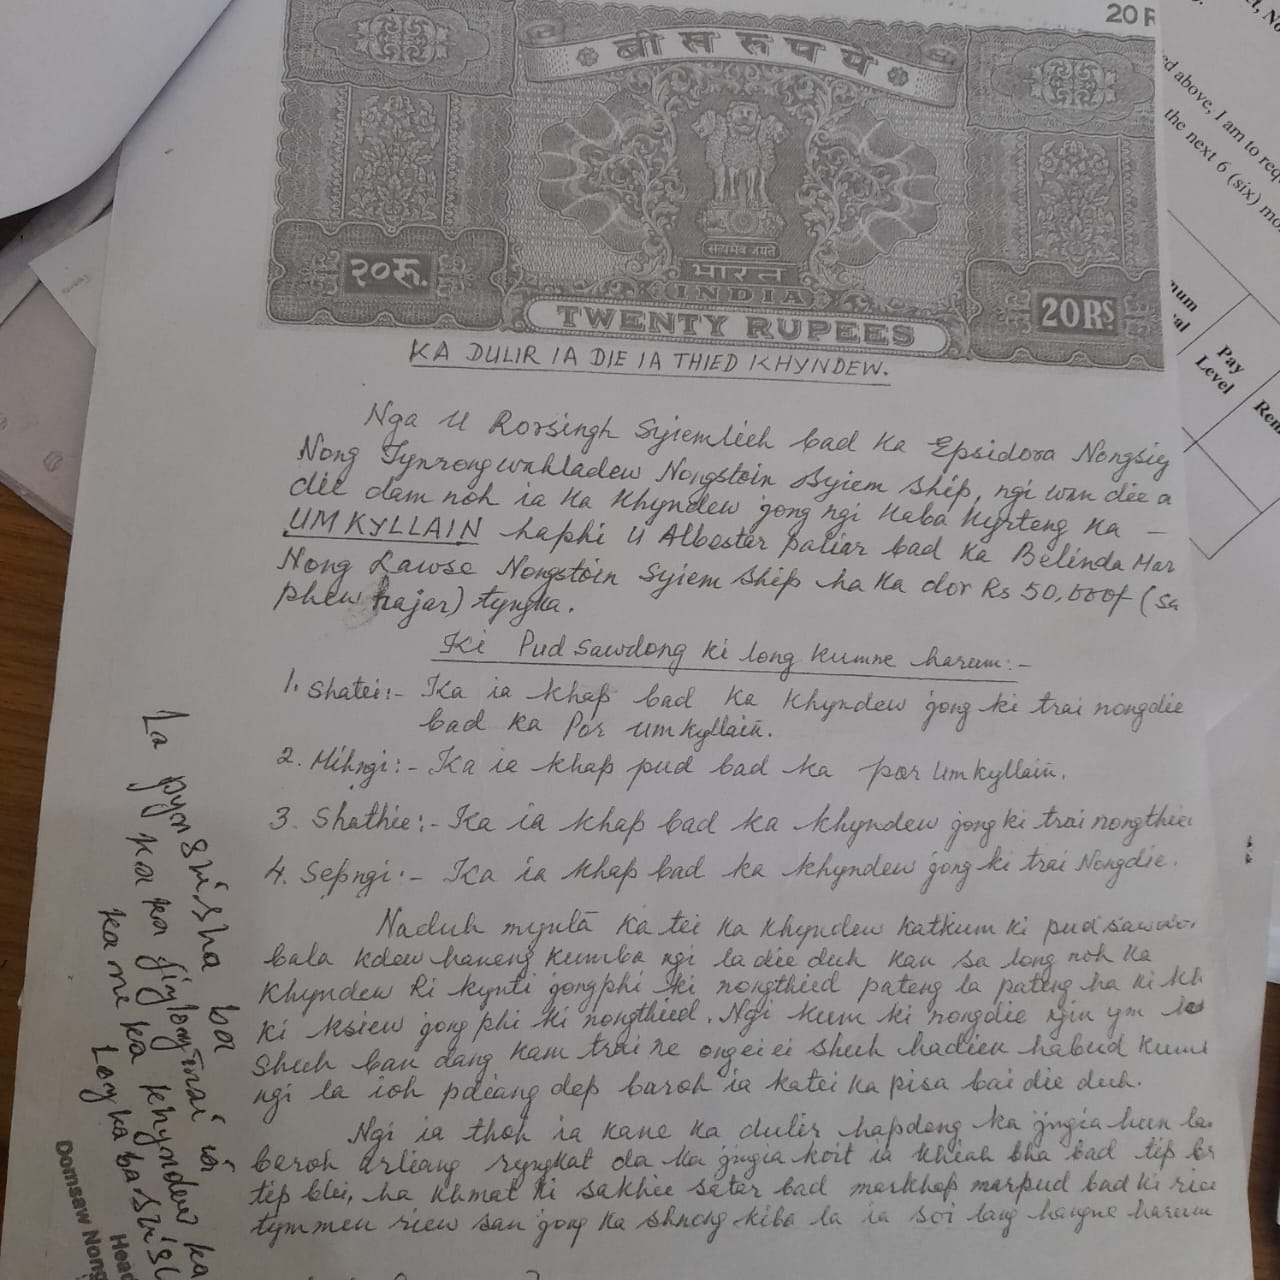 20 R
बीस रुपये
सत्यमेव जयते
भारत
INDIA
२०रु.
20RS
TWENTY RUPEES
KA DULIR IA DIE IA THIED KHYNDEW.
Nga U Rorsingh Syiemlieh bad ka Epsidora Nongsiej
Nong Tynrongwahbladew Nongstoin Syiem Ship, ngi wan die a
die dam noh ia ka khyndew jong ngi kaba kyrteng ka —
UMKYLLAIN haphi U Albostar paliar bad ka Belinda Mar
Nong Lawse Nongstoin Syiem Ship ha ka dor Rs 50,000/ (sa
phew hajar) tyngka.
Ki Pud sawdong ki long kumne harum:-
1. Shatei:- Ka ia khap bad ka khyndew jong ki trai nongdie
bad ka Por Umkyllaiñ.
2. Mihngi:- Ka ia khap pud bad ka por Umkyllaiñ.
3. Shathie:- Ka ia khap bad ka khyndew jong ki trai nongthie
4. Sepngi:- Ka ia khap bad ka khyndew jong ki trai Nongdie.
Naduh mynta ka tei ka khyndew katkum ki pud sawdo
bala kdew haneng kumba ngi la die duh kan sa long noh ka
khyndew ki kynti jongphi ki nongthied pateng la pateng ha ki kh
ki ksiew jong phi ki nongthied. Ngi kum ki nongdie ngin ym
shuh ban dang kam trai ne ong ei ei shuh hadien habud kum
ngi la ioh pdiang dep baroh ia katei ka pisa bai die duh.
Ngi ia thoh ia kane ka dulir hapdeng ka jngia hun la
baroh arliang ryngkat da ka jngia koit ia khiah bha bad tip br
tip blei, ha khmat ki sakhie satar bad markhap marpud bad ki rie
tymmen riew san jong ka shnong kiba la ia soi lang hangne harum
La pynshisha ba
ka ka jinglongtrai ia
kane ka khyndew ka
Long kaba shish
Head
Domsaw Nong
ed above, I am to req
the next 6 (six) mo
Pay
Level
Rem